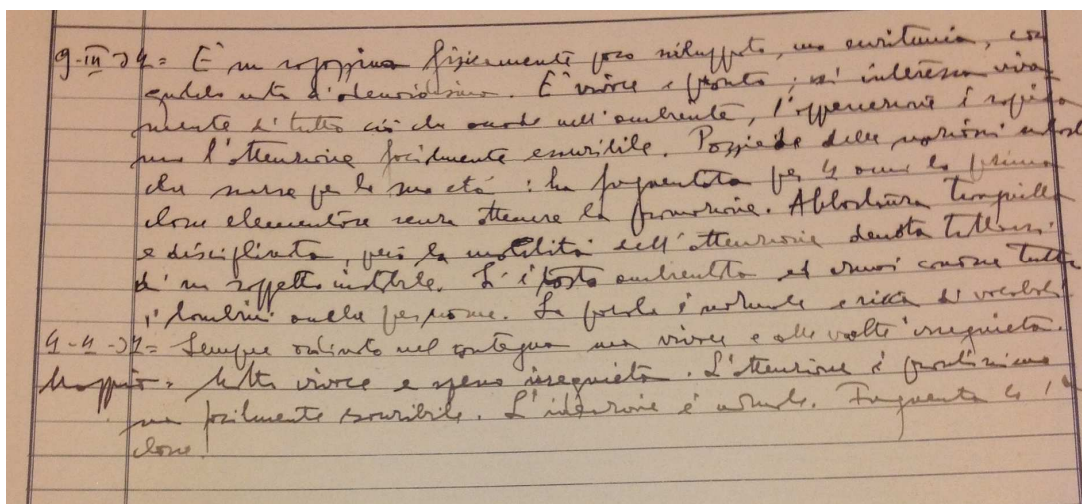 9-III-34 = È una ragazzina fisicamente poco sviluppata, ma euritmica, con
note d'adenoidismo. È vivace e pronta; si interessa viva
mente di tutto ciò che accade nell'ambiente, l'appercezione è rapida
ma l'attenzione facilmente esauribile. Possiede delle nozioni
che scarse per la sua età: ha frequentato per 4 anni la prima
classe elementare senza ottenere la promozione. Abbastanza tranquilla
e disciplinata, però la mobilità dell'attenzione denota trattarsi
di un soggetto instabile. Si è tosto ambientata ed ormai conosce tutti
i bambini anche per nome. La parola è normale e ricca di vocaboli
4-4-34 = Sempre ordinata nel contegno ma vivace e alle volte irrequieta.
Maggio = Molto vivace e spesso irrequieta. L'attenzione è prontissima
ma facilmente esauribile. L'ideazione è normale. Frequenta la 1a
classe.